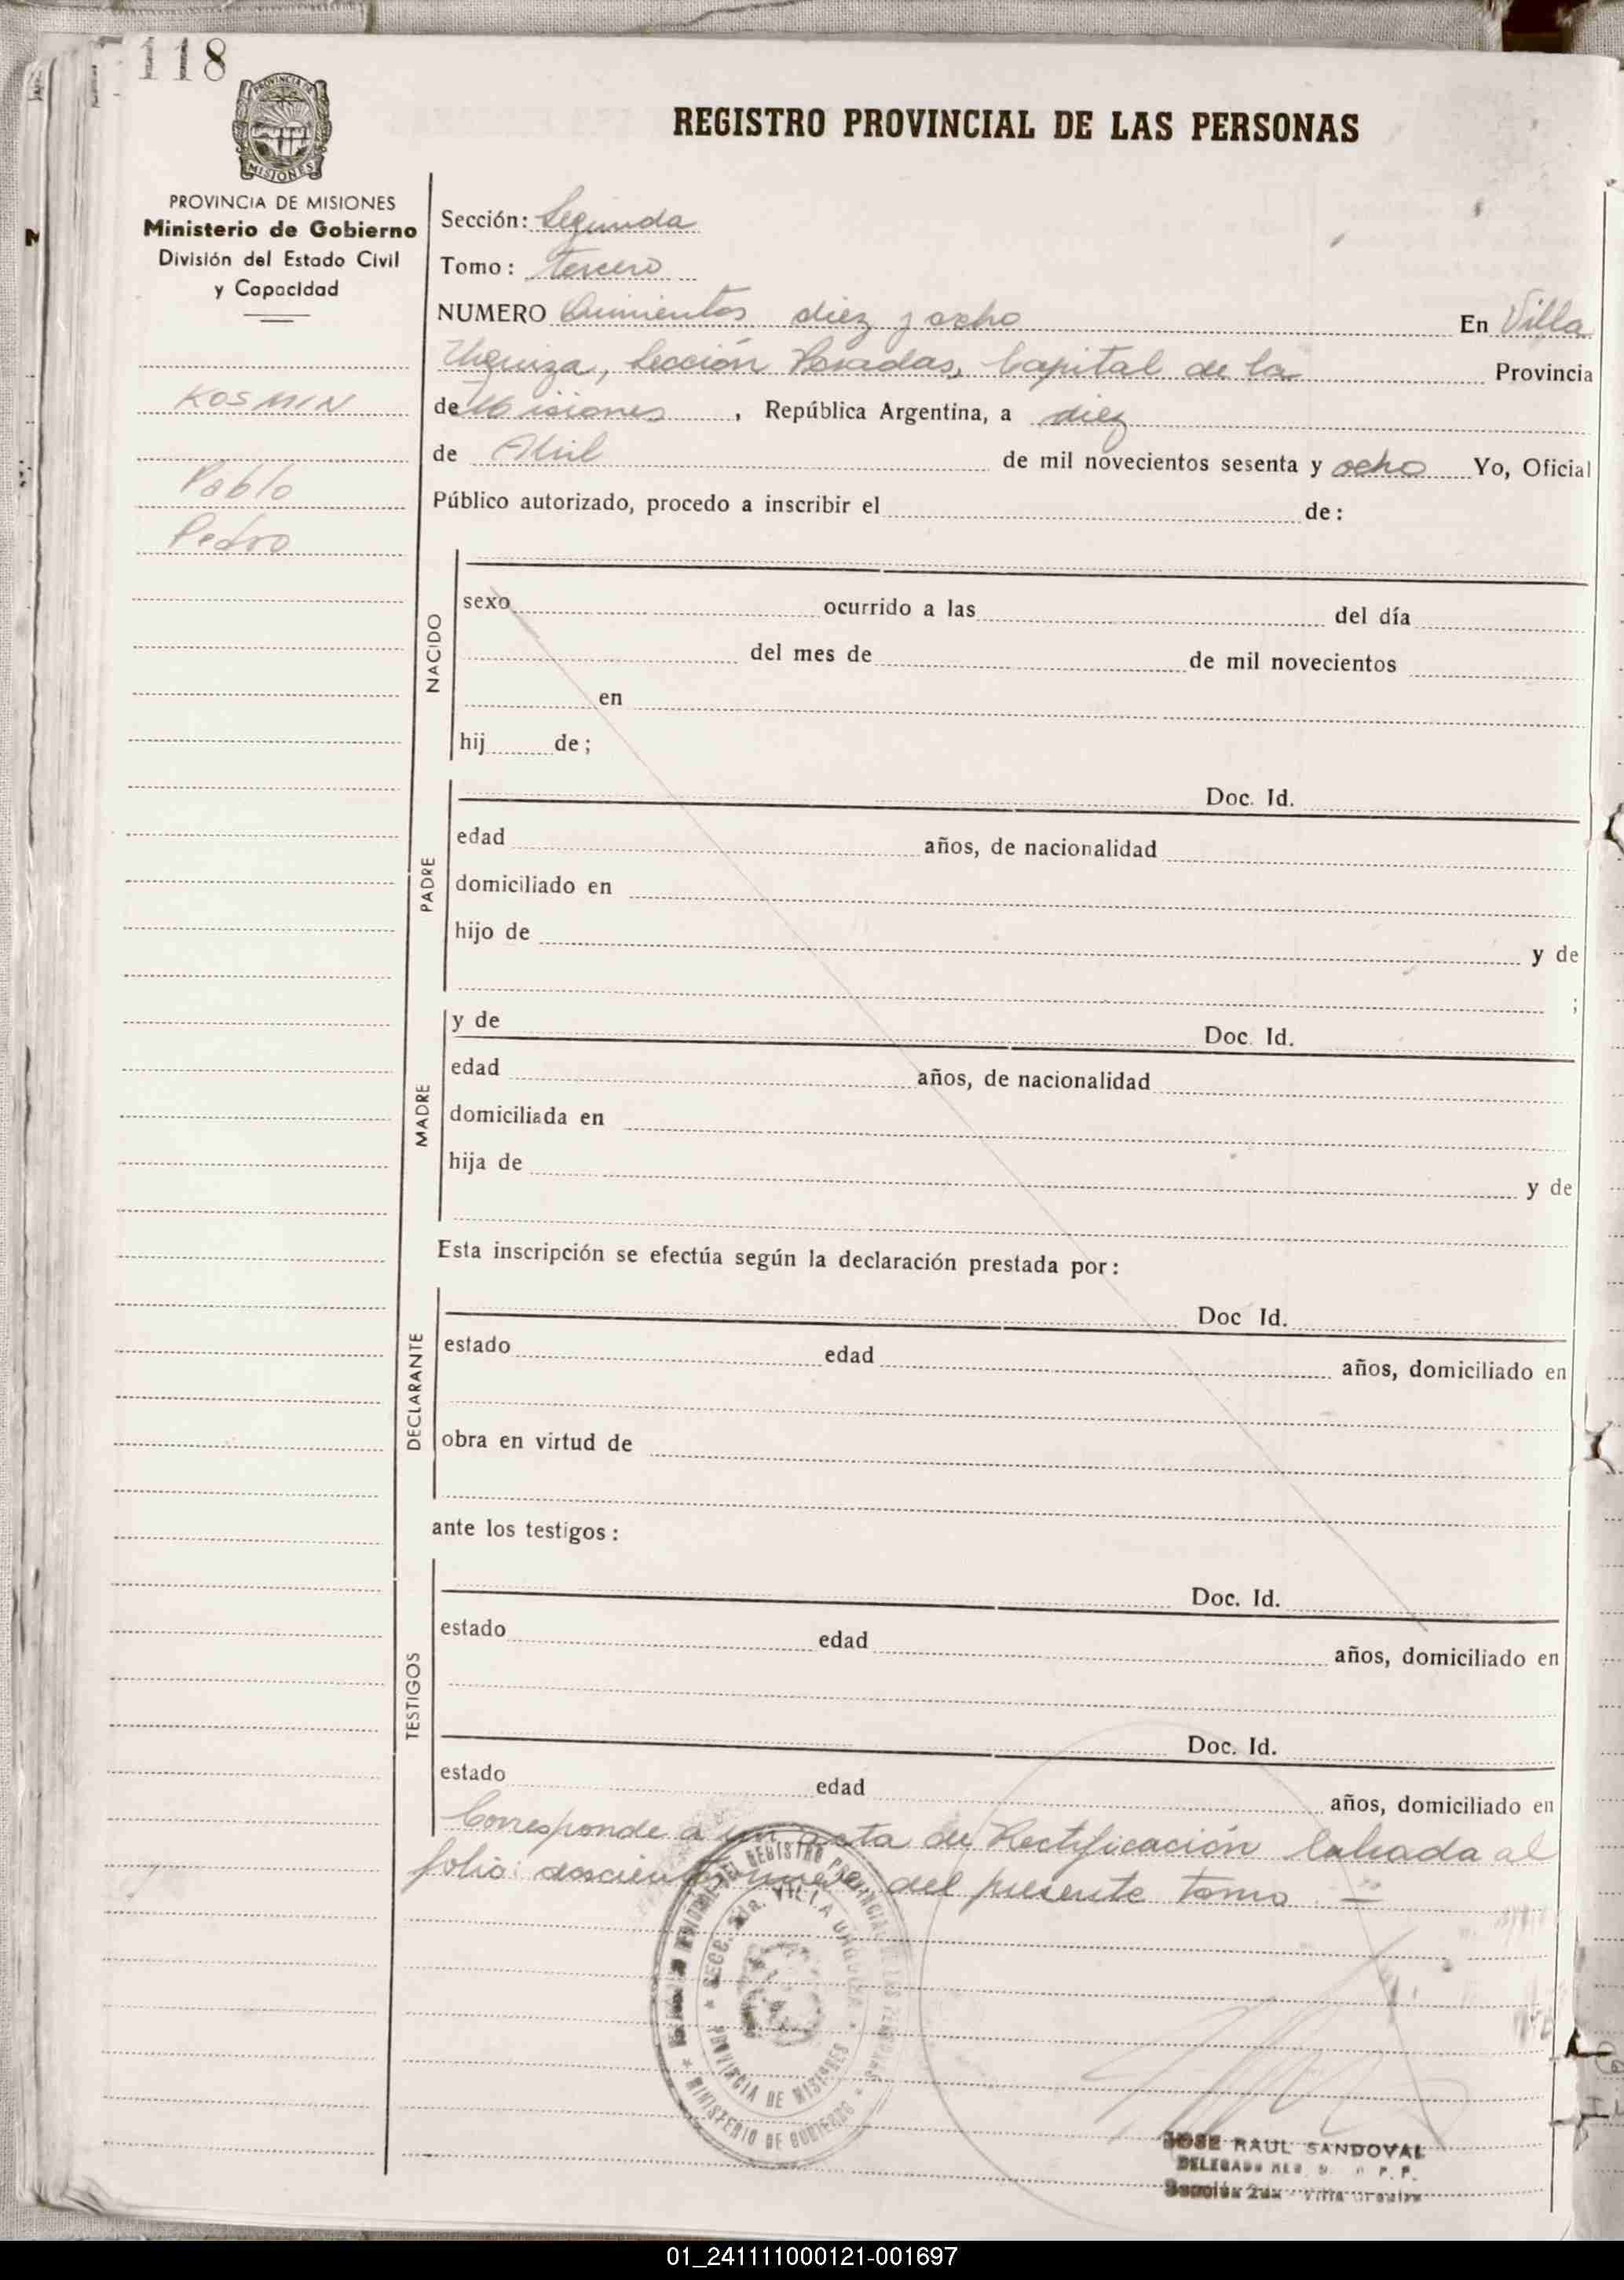 118
PROVINCIA DE
MISIONES
REGISTRO PROVINCIAL DE LAS PERSONAS
PROVINCIA DE MISIONES
Ministerio de Gobierno
División del Estado Civil
y Capacidad
KOSMIN
Pablo
Pedro
Sección: Segunda
Tomo: tercero
NUMERO Quinientos diez y ocho En Villa
Urquiza, Sección Posadas, Capital de la Provincia
de Misiones, República Argentina, a diez
de Abril de mil novecientos sesenta y ocho Yo, Oficial
Público autorizado, procedo a inscribir el de:
NACIDO
sexo ocurrido a las del día
del mes de de mil novecientos
en
hij de;
PADRE
Doc. Id.
edad años, de nacionalidad
domiciliado en
hijo de y de
;
MADRE
y de Doc. Id.
edad años, de nacionalidad
domiciliada en
hija de y de
Esta inscripción se efectúa según la declaración prestada por:
DECLARANTE
Doc Id.
estado edad años, domiciliado en
obra en virtud de
ante los testigos:
TESTIGOS
Doc. Id.
estado edad años, domiciliado en
Doc. Id.
estado edad años, domiciliado en
Corresponde a un acta de Rectificación labrada al
folio: doscientos nueve del presente tomo =
REGISTRO PROVINCIAL DE LAS PERSONAS
SECC. 2da. VILLA URQUIZA
PROVINCIA DE MISIONES
MINISTERIO DE GOBIERNO
JOSE RAUL SANDOVAL
DELEGADO REG. P. P.
Sección 2da - Villa Urquiza
01_241111000121-001697